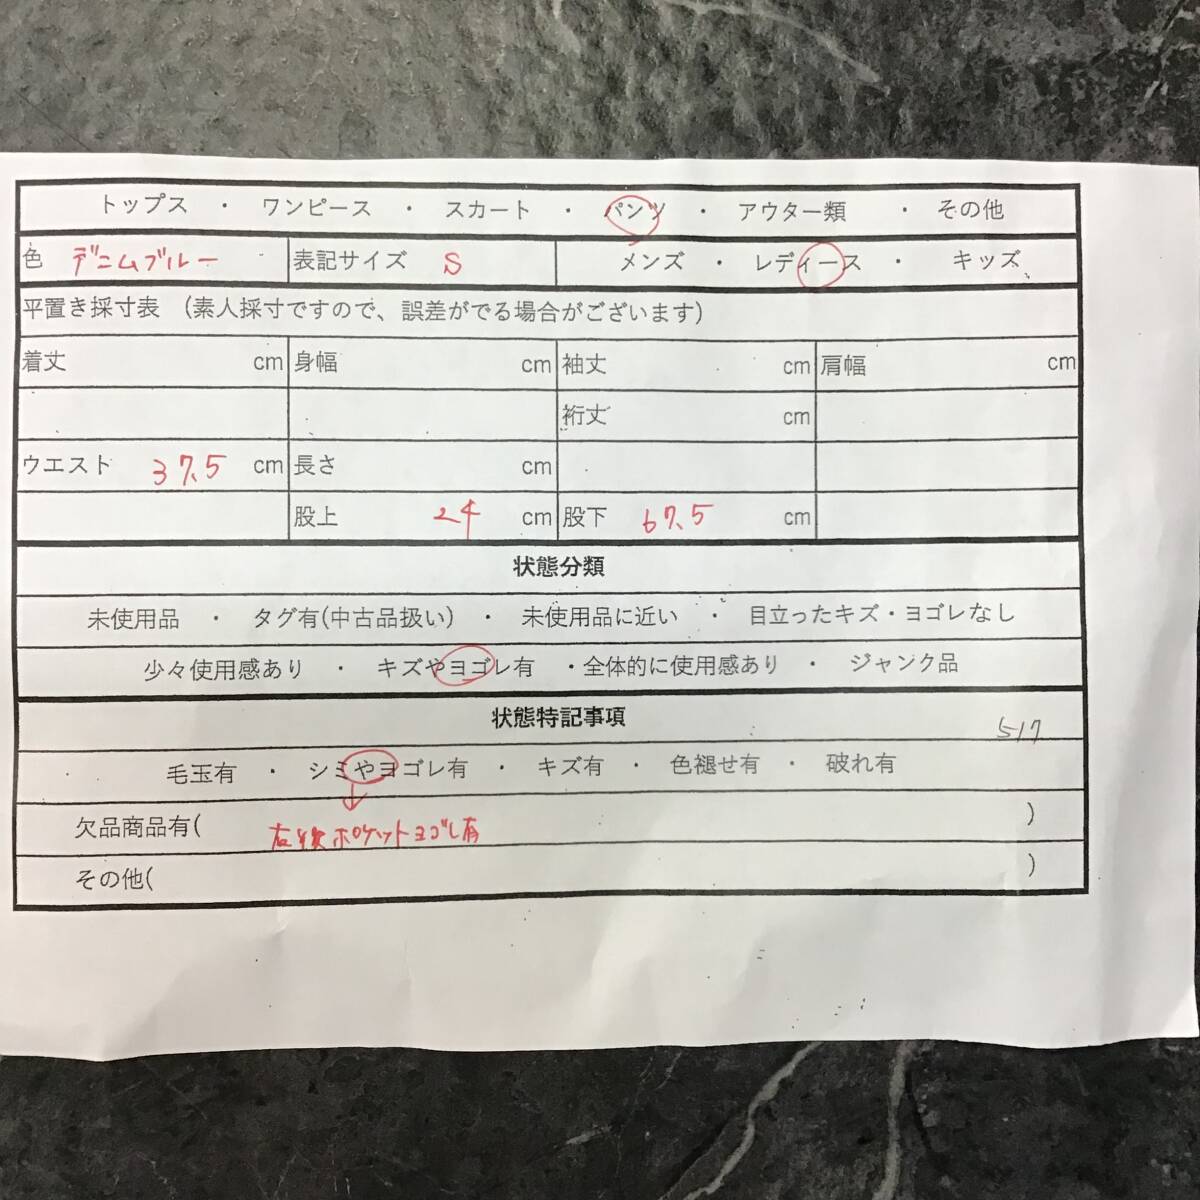 トップス ・ ワンピース ・ スカート ・ パンツ ・ アウター類 ・ その他
色 デニムブルー 表記サイズ S メンズ ・ レディース ・ キッズ
平置き採寸表 (素人採寸ですので、誤差がでる場合がございます)
着丈 cm 身幅 cm 袖丈 cm 肩幅 cm
裄丈 cm
ウエスト 37.5 cm 長さ cm
股上 24 cm 股下 67.5 cm
状態分類
未使用品 ・ タグ有(中古品扱い) ・ 未使用品に近い ・ 目立ったキズ・ヨゴレなし
少々使用感あり ・ キズやヨゴレ有 ・全体的に使用感あり ・ ジャンク品
状態特記事項
517
毛玉有 ・ シミやヨゴレ有 ・ キズ有 ・ 色褪せ有 ・ 破れ有
欠品商品有( 右後ポケットヨゴレ有 )
その他( )